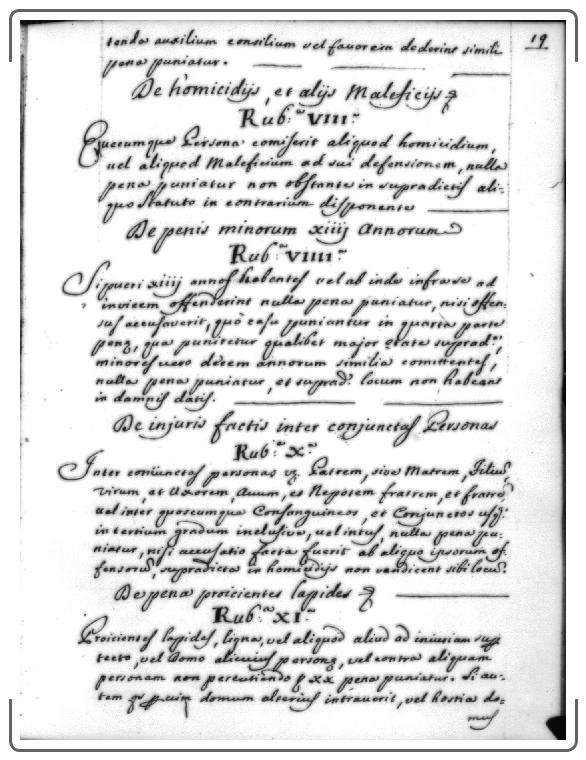 19
tenda auxilium consilium vel favorem dederint simili
pena puniatur.
De homicidijs, et alijs Maleficijs
Rub.ᵃ VIII.ᵃ
Quecumque Persona comiserit aliquod homicidium,
vel aliquod Maleficium ad sui defensionem, nulla
pena puniatur non obstante in supradictis ali-
quo statuto in contrarium disponente
De penis minorum xiiij Annorum
Rub.ᵃ VIIII.ᵃ
Si pueri xiiij annos habentes vel ab inde infra se ad
invicem offenderint nulla pena puniatur, nisi offen-
sus accusaverit, quo casu puniantur in quarta parte
penę, qua puniretur qualibet major ętate suprad.ᵃ,
minores vero decem annorum similia comittentes,
nulla pena puniatur, et suprad.ᵃ locum non habeant
in damnis datis.
De injuris factis inter conjunctas Personas
Rub.ᵃ X.ᵃ
Inter coniunctas personas vz. Patrem, sive Matrem, Filiū,
virum, et Uxorem, Avum, et Nepotem fratrem, et fratrē
vel inter quoscumque Consanguineos, et Conjunctos usq;
in tertium gradum inclusive, vel intus, nulla pena pu-
niatur, nisi accusatio facta fuerit ab aliquo ipsorum of-
fensorū, supradicta in homicidijs non vendicent sibi locū.
De pena proicientes lapides
Rub.ᵃ XI.ᵃ
Proicientes lapides, ligna, vel aliquod aliud ad iniuriam
tecto, vel Domo alicuius personę, vel contra aliquam
personam non percutiendo p xx pena puniatur. Si au-
tem domum alterius intraverit, vel hostia do-
mus